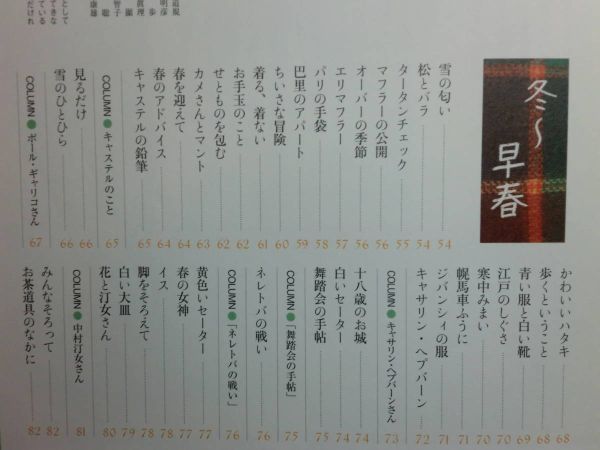 冬〜早春
雪の匂い 54
松とバラ 54
タータンチェック 55
マフラーの公開 56
オーバーの季節 56
エリマフラー 57
パリの手袋 58
巴里のアパート 59
ちいさな冒険 60
着る、着ない 61
お手玉のこと 62
せとものを包む 62
カメさんとマント 63
春を迎えて 64
春のアドバイス 64
キャステルの鉛筆 65
COLUMN ● キャステルのこと 65
見るだけ 66
雪のひとひら 66
COLUMN ● ポール・ギャリコさん 67
かわいいハタキ 68
歩くということ 68
青い服と白い靴 69
江戸のしぐさ 70
寒中みまい 70
幌馬車ふうに 71
ジバンシィの服 71
キャサリン・ヘプバーン 72
COLUMN ● キャサリン・ヘプバーンさん 73
十八歳のお城 74
白いセーター 74
舞踏会の手帖 75
COLUMN ● 「舞踏会の手帖」 75
ネレトバの戦い 76
COLUMN ● 「ネレトバの戦い」 76
黄色いセーター 77
春の女神 77
イス 78
脚をそろえて 78
白い大皿 79
花と汀女さん 80
COLUMN ● 中村汀女さん 81
みんなそろって 82
お茶道具のなかに 82
明彦
歩
眞理
顕
智子
聡
康雄
として
てきな
ている
だけれ